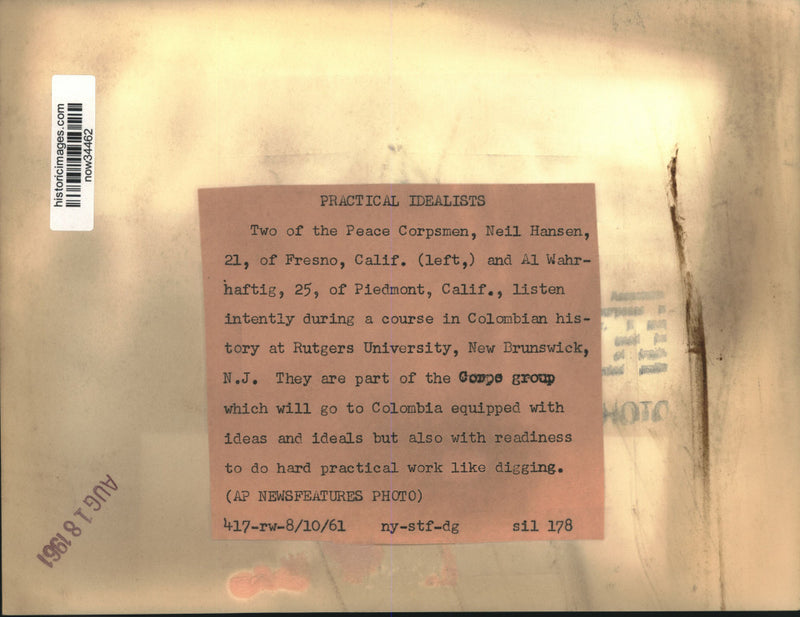 historicimages.com
now34462
PRACTICAL IDEALISTS
Two of the Peace Corpsmen, Neil Hansen,
21, of Fresno, Calif. (left,) and Al Wahr-
haftig, 25, of Piedmont, Calif., listen
intently during a course in Colombian his-
tory at Rutgers University, New Brunswick,
N.J. They are part of the Corps group
which will go to Colombia equipped with
ideas and ideals but also with readiness
to do hard practical work like digging.
(AP NEWSFEATURES PHOTO)
417-rw-8/10/61 ny-stf-dg sil 178
AUG 18 1961